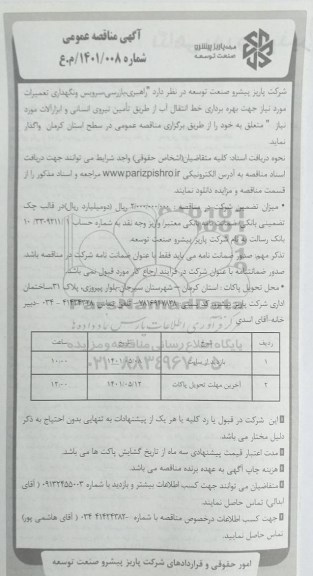 آگهی مناقصه عمومی
شماره ۱۴۰۱/۰۰۸/م.ع
پاریز پیشرو
صنعت توسعه
شرکت پاریز پیشرو صنعت توسعه در نظر دارد "راهبری،بازرسی،سرویس ونگهداری تعمیرات
مورد نیاز جهت بهره برداری خط انتقال آب از طریق تأمین نیروی انسانی و ابزارآلات مورد
نیاز " متعلق به خود را از طریق برگزاری مناقصه عمومی در سطح استان کرمان واگذار
نماید.
نحوه دریافت اسناد: کلیه متقاضیان(اشخاص حقوقی) واجد شرایط می توانند جهت دریافت
اسناد مناقصه به آدرس الکترونیکی www.parizpishro.ir مراجعه و اسناد مذکور را از
قسمت مناقصه و مزایده دانلود نمایند.
• میزان تضمین شرکت در مناقصه: ریال (دومیلیارد ریال)در قالب چک
تضمینی بانکی، ضمانت نامه بانکی معتبر یا واریز وجه نقد به شماره حساب
بانک رسالت به نام شرکت پاریز پیشرو صنعت توسعه.
تذکر مهم: صدور ضمانت نامه می باید فقط با عنوان ضمانت نامه شرکت در مناقصه باشد.
صدور ضمانتنامه با عنوان شرکت در فرآیند ارجاع کار مورد قبول نمی باشد.
• محل تحویل پاکات : استان کرمان – شهرستان سیرجان-بلوار پیروزی، پلاک ۳۱-ساختمان
اداری شرکت پاریز پیشرو
خانه-آقای اسدی
ParsNamadData
پایگاه اطلاع رسانی مناقصه و مزایده
۰۲۱-۸۸۳۴۹۶۷۰-۵
ردیف ساعت
۱ ۱۰:۰۰
۲ آخرین مهلت تحویل پاکات ۱۴۰۱/۰۵/۱۲ ۱۲:۰۰
این شرکت در قبول یا رد کلیه یا هر یک از پیشنهادات به تنهایی بدون احتیاج به ذکر
دلیل مختار می باشد.
مدت اعتبار قیمت پیشنهادی سه ماه از تاریخ گشایش پاکت ها می باشد.
هزینه چاپ آگهی به عهده برنده مناقصه می باشد.
متقاضیان می توانند جهت کسب اطلاعات بیشتر و بازدید با شماره ۰۹۱۳۲۴۵۵۰۰۳ ( آقای
ابدالی) تماس حاصل نمایند.
جهت کسب اطلاعات درخصوص مناقصه با شماره ۴۱۴۲۴۳۸۲-۰۳۴ ( آقای هاشمی پور)
تماس حاصل نمایید.
امور حقوقی و قراردادهای شرکت پاریز پیشرو صنعت توسعه